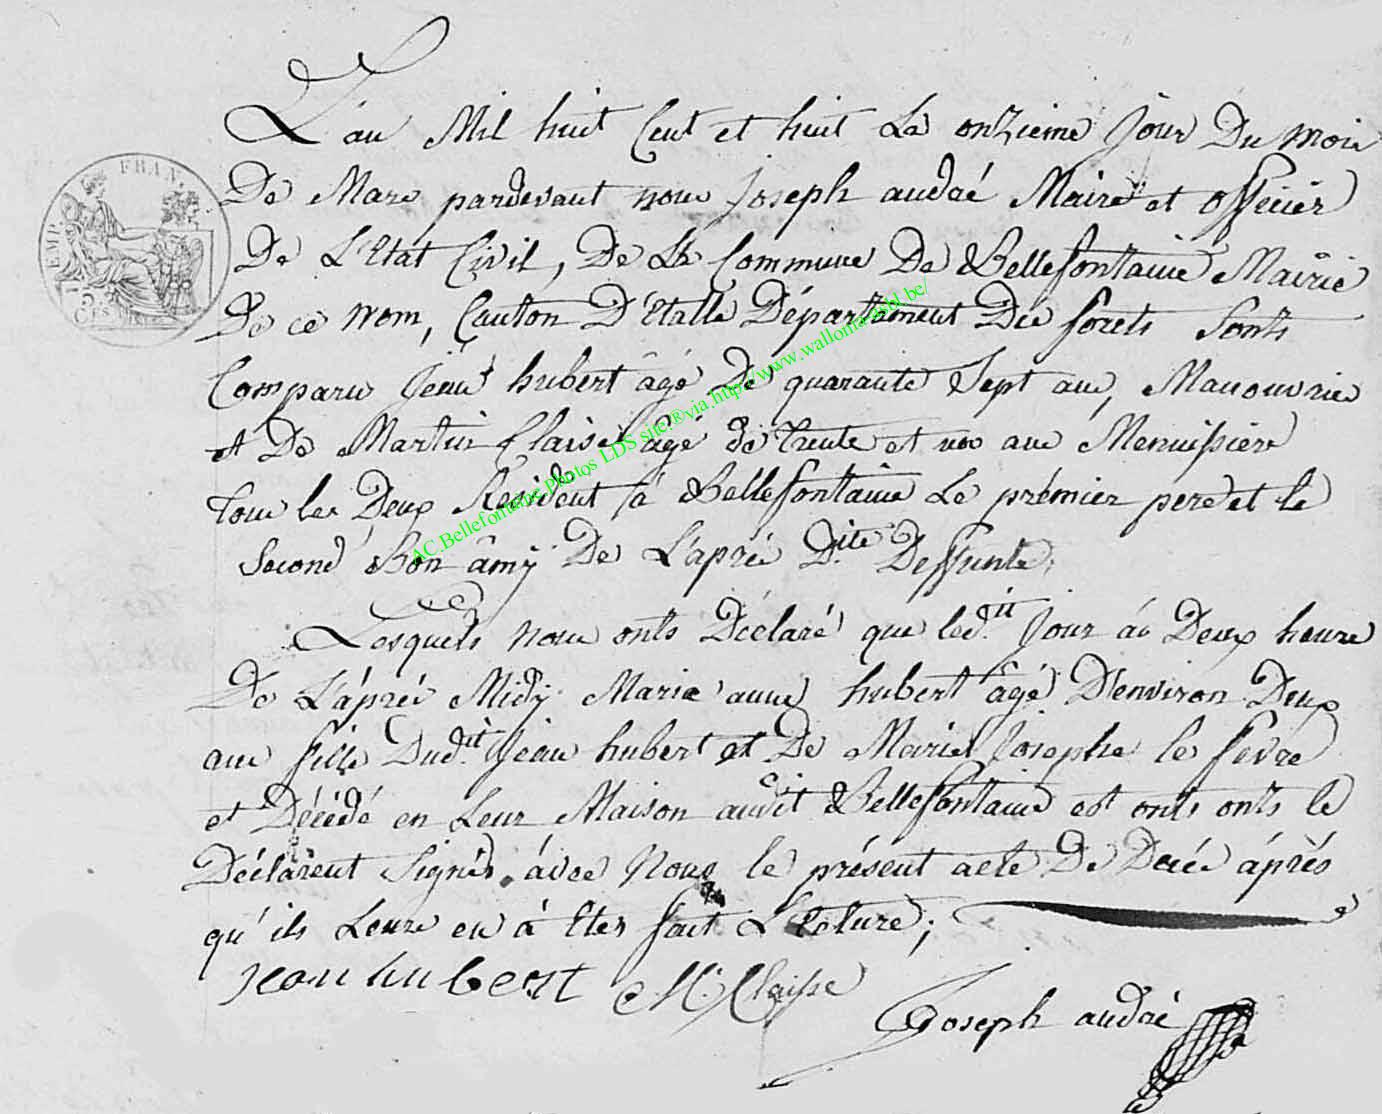 L'an Mil huit Cent et huit La onzieme Jour Du mois
De Mars pardevant nous Joseph andré Maire et officier
De L'Etat Civil, De La Commune De Bellefontaine Mairie
De ce nom, Canton D'Etalle Département Des forets Sonts
Comparu Jean hubert âgé De quarante Sept ans, Manouvrie
et De Martin Claisse âgé de trente et un ans Menuissiere
tous les Deux Resident à Bellefontaine Le prémier pere et le
Second Bon âmÿ De L'aprés Dite Deffunte,
Lesquels nous onts Déclaré que ledit Jour à Deux heure
De L'áprés Midÿ Marie anne hubert âgé D'environ Deux
ans fille Dudit Jean hubert et De Marie Josephe le fevre
et Décédé en Leur Maison audit Bellefontaine est onts onts le
Déclarent Signés avec Nous le présent acte De Decé áprés
qu'ils Leure en à Eter fait Lecture;
jean hubert M. Claisse
Joseph andré
EMP. FRAN.
75 CES
AC.Bellefontaine.Photos LDS site:®via.http//www.wallonia-asbl.be/